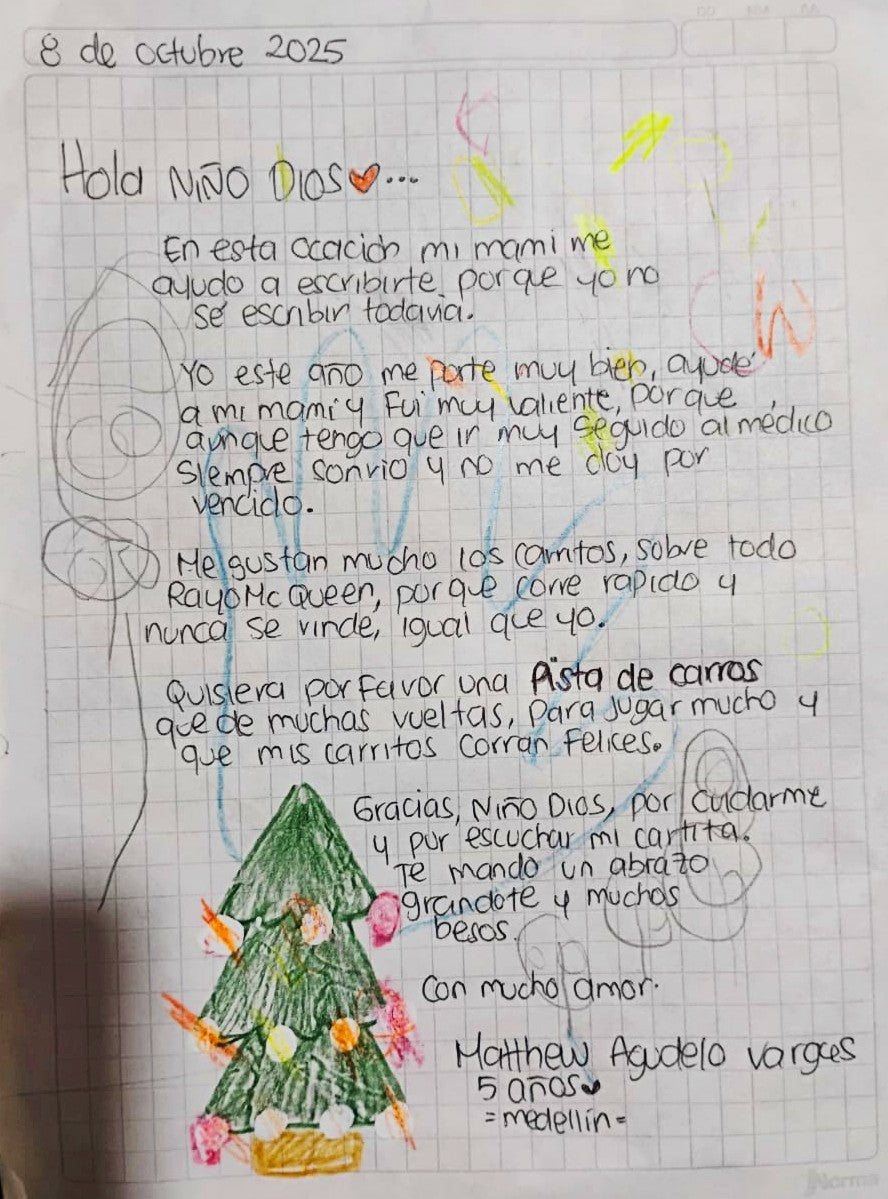 8 de octubre 2025
Hola NIÑO DIOS ...
En esta ocación mi mami me
ayudo a escribirte, porque yo no
sé escribir todavia.
Yo este año me porte muy bien, ayudé
a mi mami y Fui muy valiente, porque
aunque tengo que ir muy seguido al médico
siempre sonrio y no me doy por
vencido.
Me gustan mucho los carritos, sobre todo
Rayo Mc Queen, porque corre rapido y
nunca se rinde, igual que yo.
Quisiera por Favor una Pista de carros
que de muchas vueltas, para jugar mucho y
que mis carritos corran Felices.
Gracias, Niño Dios, por cuidarme
y por escuchar mi cartita.
Te mando un abrazo
grandote y muchos
besos.
Con mucho amor.
Matthew Agudelo vargas
5 años
= medellin =
Norma